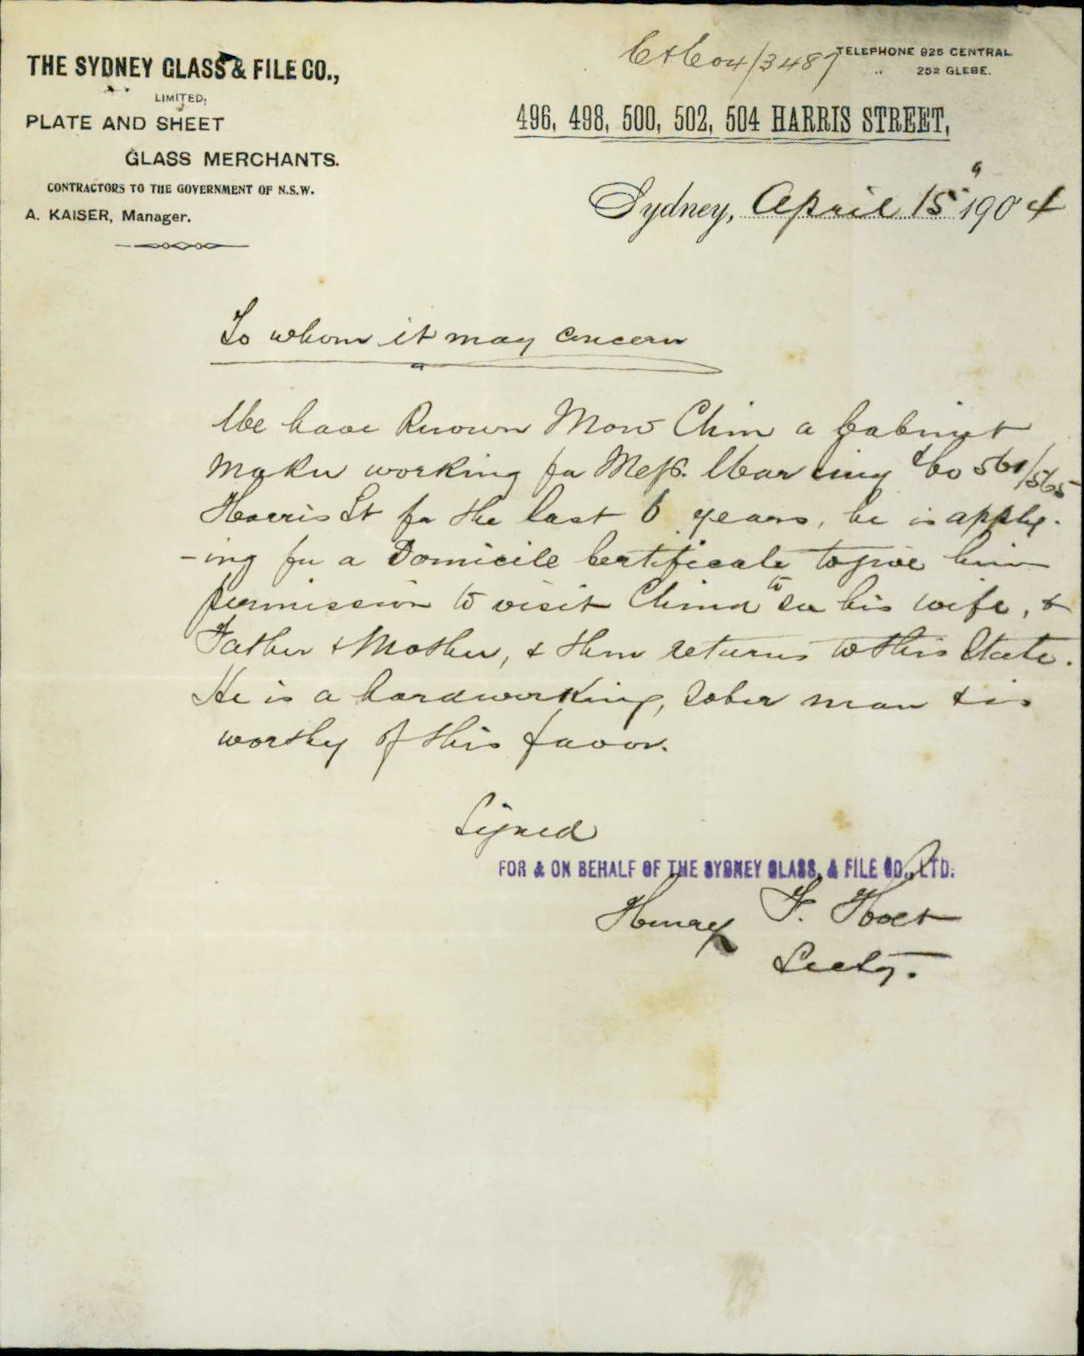 THE SYDNEY GLASS & FILE CO.,
LIMITED,
PLATE AND SHEET
GLASS MERCHANTS.
CONTRACTORS TO THE GOVERNMENT OF N.S.W.
A. KAISER, Manager.
C&C 04/3487
TELEPHONE 925 CENTRAL
" 252 GLEBE.
496, 498, 500, 502, 504 HARRIS STREET,
Sydney, April 15th 1904
To whom it may concern
We have known Mow Chim a Cabinet
Maker working for Mess. War Sing & Co 561/565
Harris St for the last 6 years, he is apply-
-ing for a Domicile Certificate to give him
permission to visit China to see his wife, &
Father & Mother, & then returns to this State.
He is a hardworking, sober man & is
worthy of this favor.
Signed
FOR & ON BEHALF OF THE SYDNEY GLASS, & FILE CO., LTD.
Henry F. Holt
Secty.